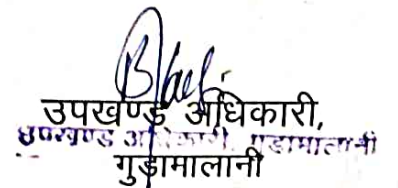 उपखण्ड अधिकारी,
उपखण्ड अधिकारी, गुडामालानी
गुडामालानी